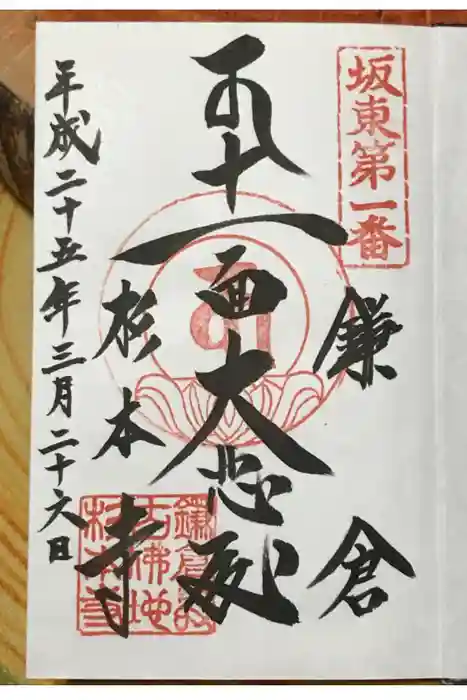 坂東第一番
鎌倉
十一面大悲殿
杉本寺
鎌倉最
古佛地
杉本寺
平成二十五年三月二十六日